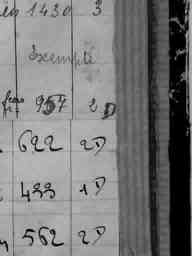 1430 3
Exempté
957 2D
622 2D
433 1D
562 2D